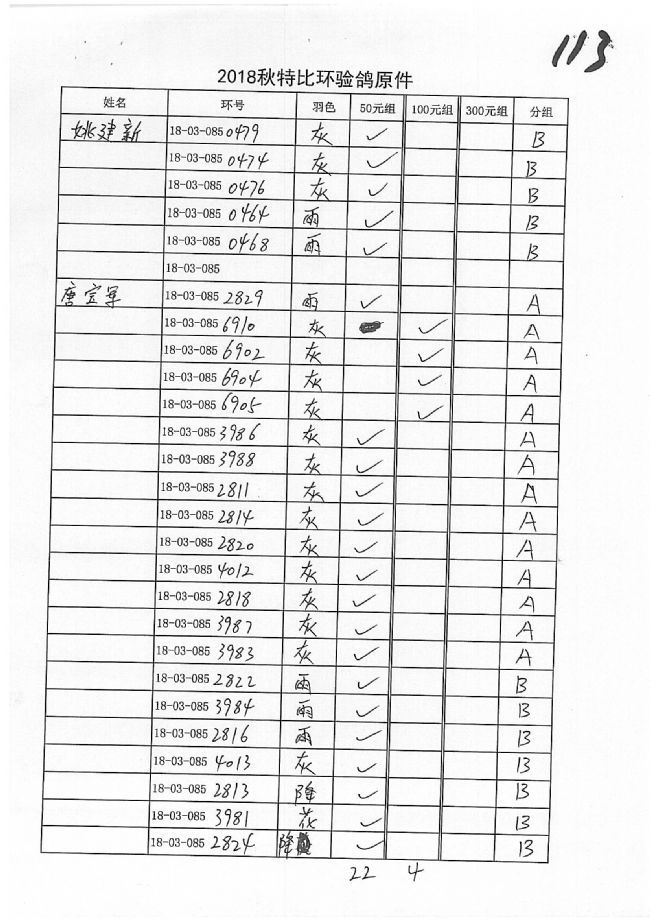 113
2018秋特比环验鸽原件
姓名 环号 羽色 50元组 100元组 300元组 分组
姚建新 18-03-085 0479 灰 ✓ B
18-03-085 0474 灰 ✓ B
18-03-085 0476 灰 ✓ B
18-03-085 0464 雨 ✓ B
18-03-085 0468 雨 ✓ B
18-03-085
唐宝军 18-03-085 2829 雨 ✓ A
18-03-085 6910 灰 ✓ A
18-03-085 6902 灰 ✓ A
18-03-085 6904 灰 ✓ A
18-03-085 6905 灰 ✓ A
18-03-085 3986 灰 ✓ A
18-03-085 3988 灰 ✓ A
18-03-085 2811 灰 ✓ A
18-03-085 2814 灰 ✓ A
18-03-085 2820 灰 ✓ A
18-03-085 4012 灰 ✓ A
18-03-085 2818 灰 ✓ A
18-03-085 3987 灰 ✓ A
18-03-085 3983 灰 ✓ A
18-03-085 2822 雨 ✓ B
18-03-085 3984 雨 ✓ B
18-03-085 2816 雨 ✓ B
18-03-085 4013 灰 ✓ B
18-03-085 2813 降 ✓ B
18-03-085 3981 花 ✓ B
18-03-085 2824 降 ✓ B
22 4